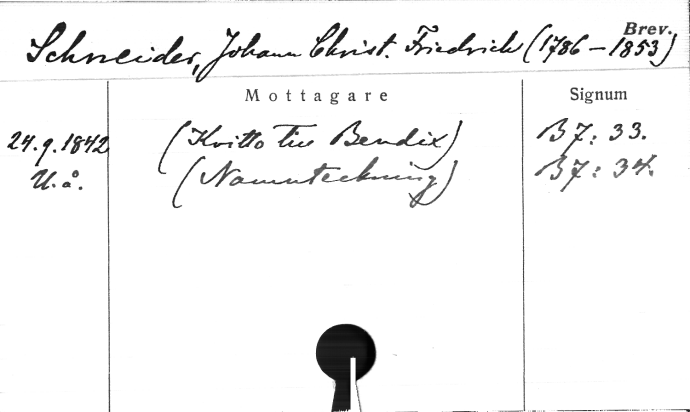 Brev.
Schneider, Johann Christ. Friedrich (1786–1853)
Mottagare Signum
24.9.1842 (Kvitto till Bendix) B7: 33.
U.å. (Namnteckning) B7: 34.